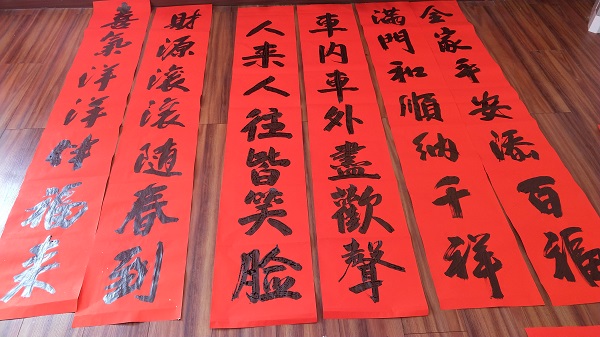 全家平安添百福
满門和順納千祥
車内車外盡歡聲
人来人往皆笑脸
財源滚滚随春到
喜氣洋洋伴福来